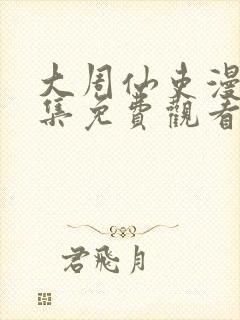 大周仙吏漫
集免費觀看
君飛月